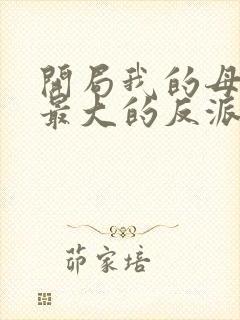 開局我的母
最大的反派
茆家培